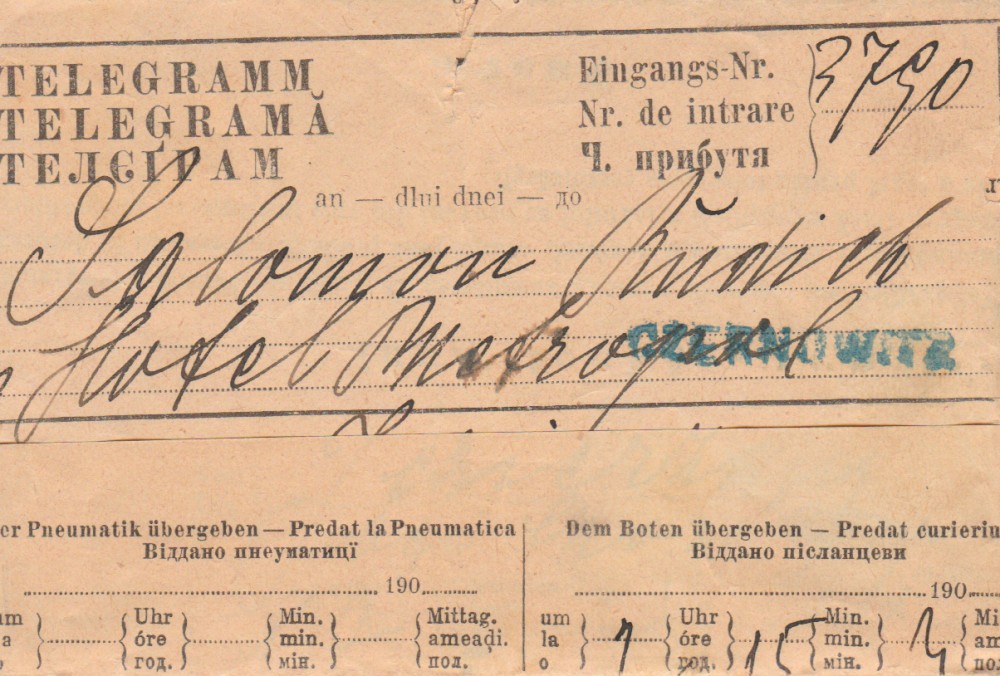 TELEGRAMM
TELEGRAMĂ
ТЕЛЄҐРАМ
an — dlui dnei — до
Eingangs-Nr.
Nr. de intrare
Ч. прибутя
3790
Salomon Rudich
Hotel Metropol
CZERNOWITZ
er Pneumatik übergeben — Predat la Pneumatica
Віддано пнеуматиції
190
um } { Uhr } { Min. } { Mittag.
la } { óre } { min. } { ameadi.
о } { год. } { мін. } { пол.
Dem Boten übergeben — Predat curieriu
Віддано післанцеви
190
um } { Uhr } { Min. } { Mi
la } 7 { óre } 15 { min. }
о } { год. } { мін. } { по